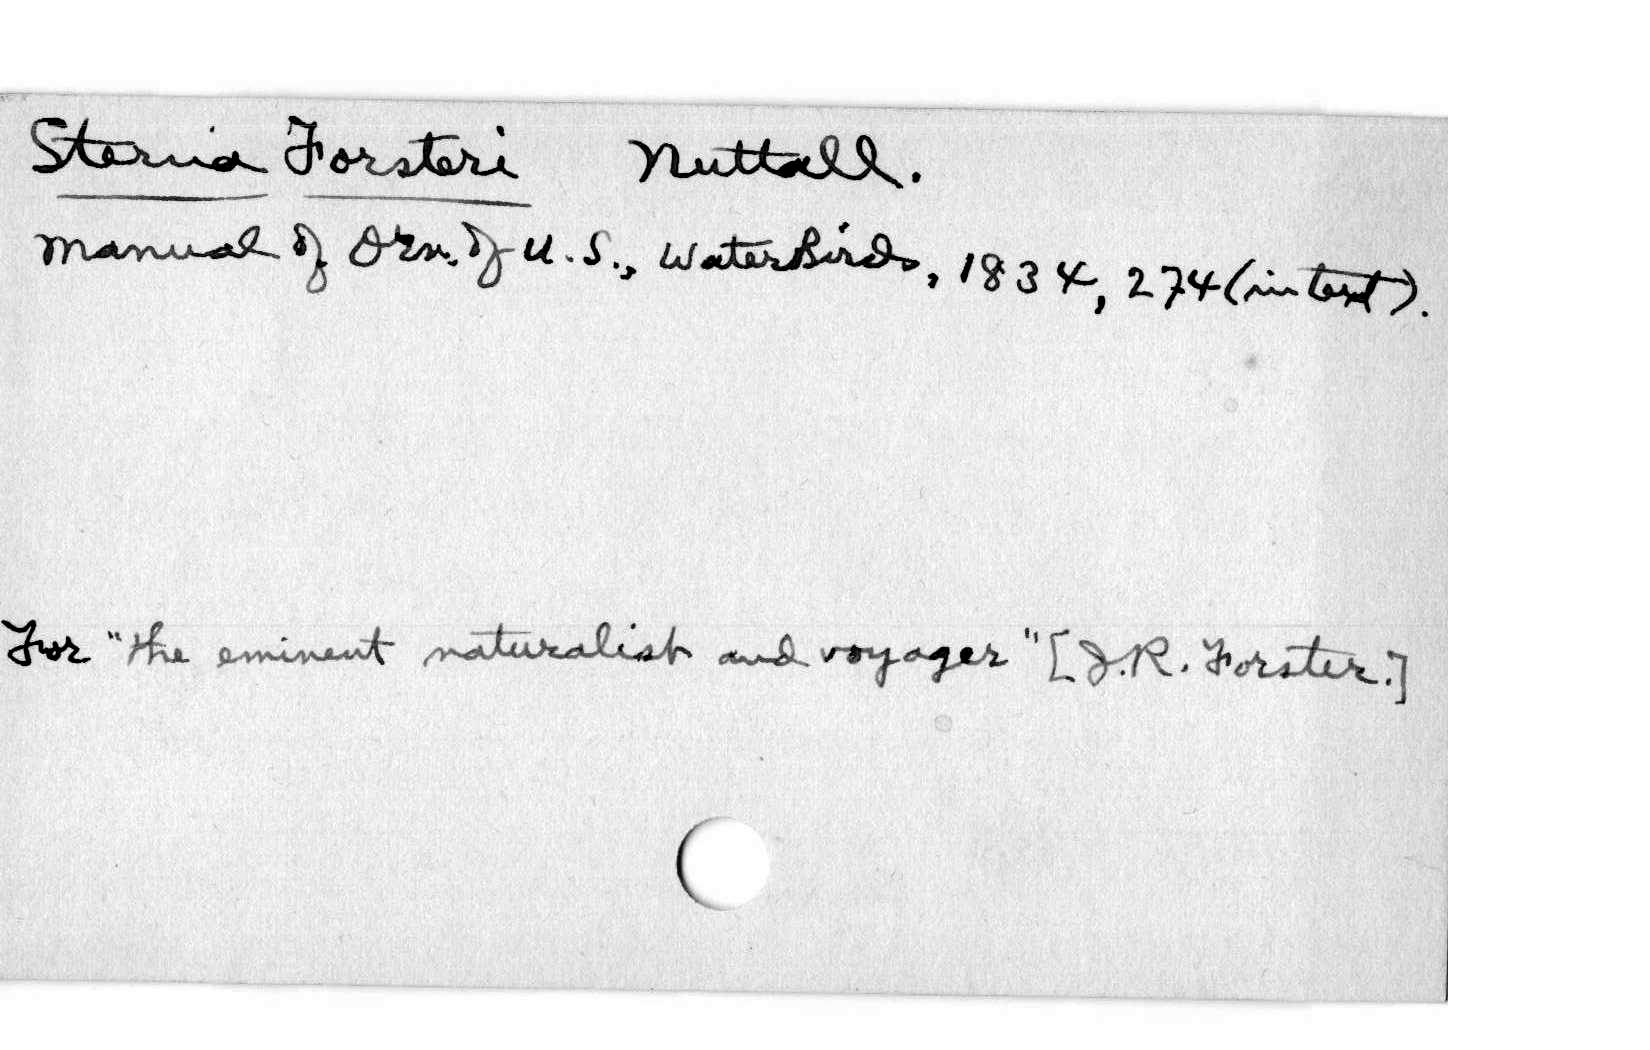 Sterna Forsteri Nuttall.
Manual of Orn. of U.S., Water Birds, 1834, 274 (in text).
For "the eminent naturalist and voyager" [J.R. Forster.]